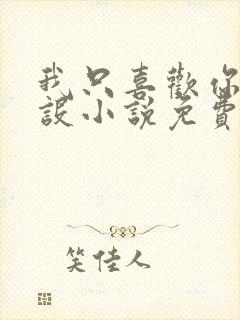 我只喜歡你
設小說免費
笑佳人